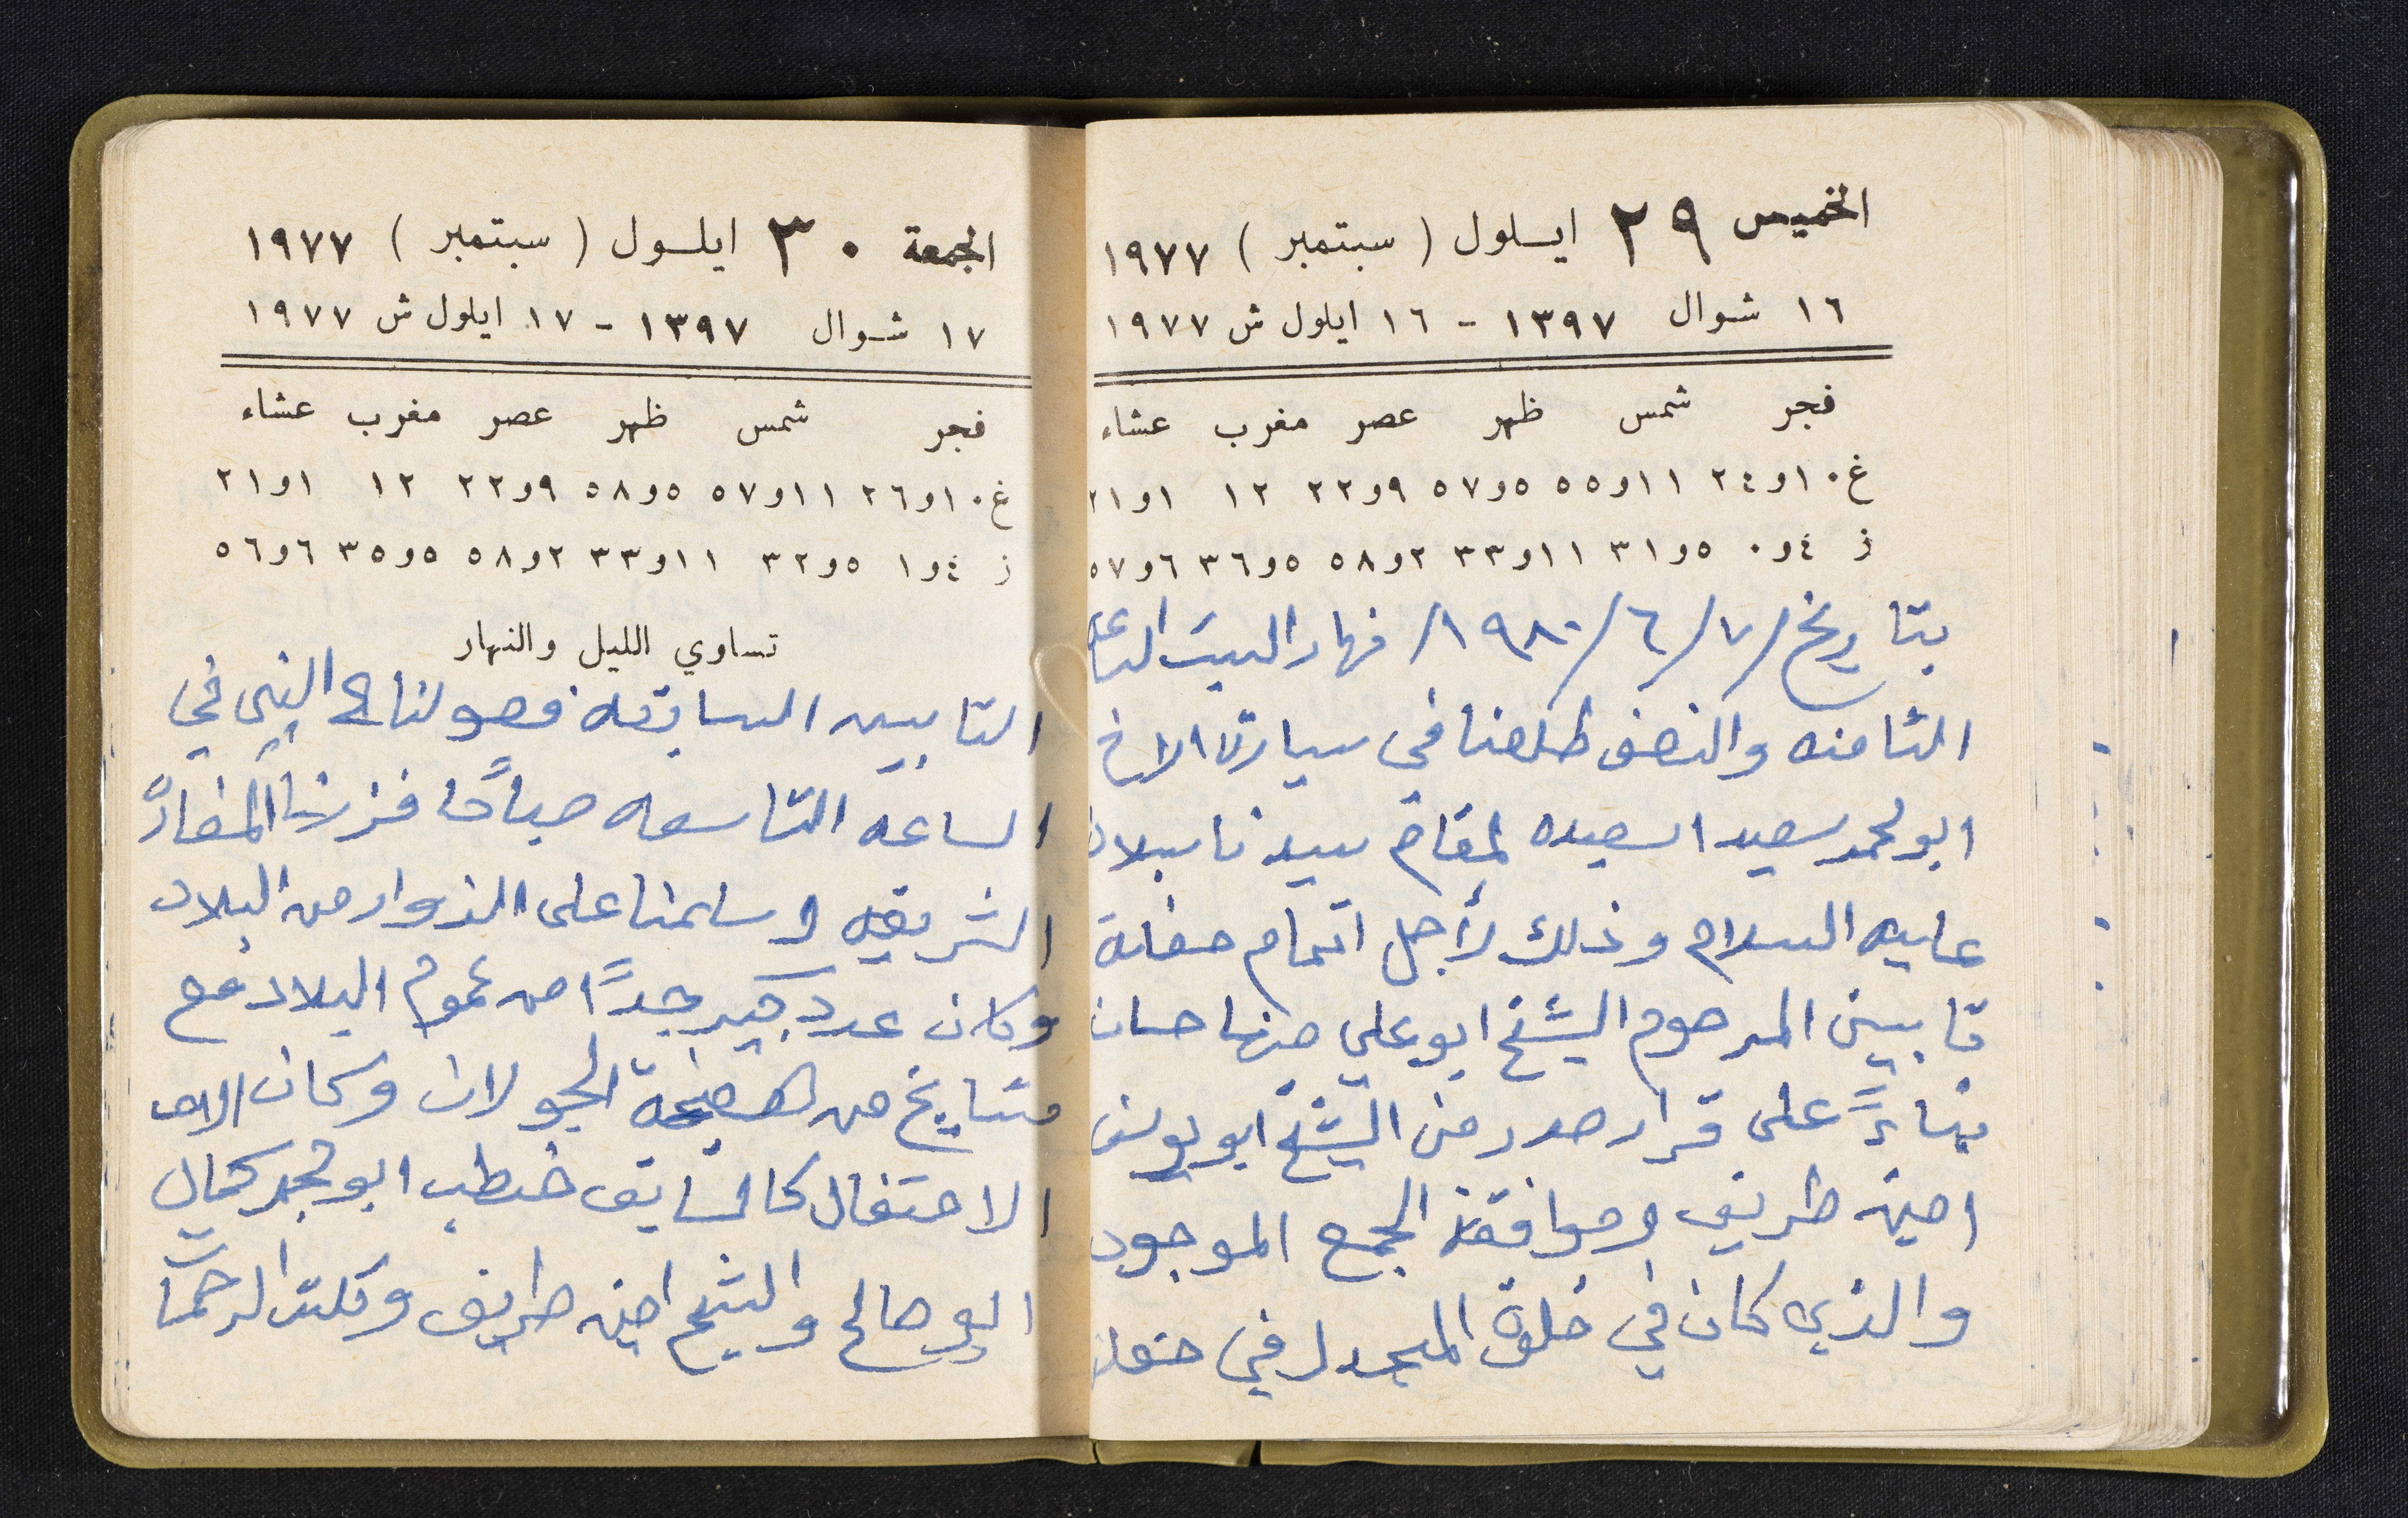 الخميس ٢٩ ايلول ( سبتمبر ) ١٩٧٧
١٦ شوال ١٣٩٧ - ١٦ ايلول ش ١٩٧٧
فجر شمس ظهر عصر مغرب عشاء
غ ١٠و٢٤ ١١و٥٥ ٥و٥٧ ٩و٢٢ ١٢ ١و٢١
ز ٤و٠ ٥و٣١ ١١و٣٣ ٢و٥٨ ٥و٣٦ ٦و٥٧
بتاريخ /٧/ ٦/ ١٩٨٠/ نهار السبت الساعه
الثامنه والنصف طلعنا في سيارة الاخ
ابو محمد سعيد اسعيده لمقام سيدنا سبلان
عليه السلام وذلك لأجل اتمام حفلة
تابين المرحوم الشيخ ابو علي مهنا حسان
بناءً على قرار صدر من الشيخ ابو يوسف
امين طريف وموافقة الجمع الموجود
والذي كان في خلوة المجدل في حفلة
الجمعة ٣٠ ايلول ( سبتمبر ) ١٩٧٧
١٧ شوال ١٣٩٧ - ١٧ ايلول ش ١٩٧٧
فجر شمس ظهر عصر مغرب عشاء
غ ١٠و٢٦ ١١و٥٧ ٥و٥٨ ٩و٢٢ ١٢ ١و٢١
ز ٤و١ ٥و٣٢ ١١و٣٣ ٢و٥٨ ٥و٣٥ ٦و٥٦
تساوي الليل والنهار
التابين السابقه فصولنا النبي في
الساعه التاسعه صباحًا فزرنا المغارة
الشريفه وسلمنا على الزوار من البلاد
وكان عدد كبير جدًا من عموم البلاد مع
مشايخ من هضبة الجولان وكان
الاحتفال كالسابق خطب ابو محمد كمال
ابو صالح والشيخ امين طريف وتلت الرحمات